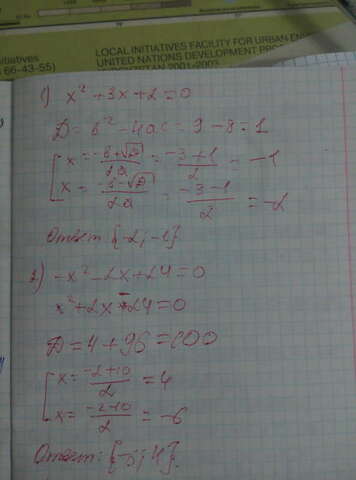 LOCAL INITIATIVES FACILITY FOR URBAN EN
UNITED NATIONS DEVELOPMENT PRO
2001-2003
itiatives
66-43-55)
1) x² + 3x + 2 = 0
D = b² - 4ac = 9 - 8 = 1
x = (-b+√D)/2a = (-3+1)/2 = -1
x = (-b-√D)/2a = (-3-1)/2 = -2
Ответ: {-2; -1}
2) -x² - 2x + 24 = 0
x² + 2x - 24 = 0
D = 4 + 96 = 100
x = (-2+10)/2 = 4
x = (-2-10)/2 = -6
Ответ: {-6; 4}.